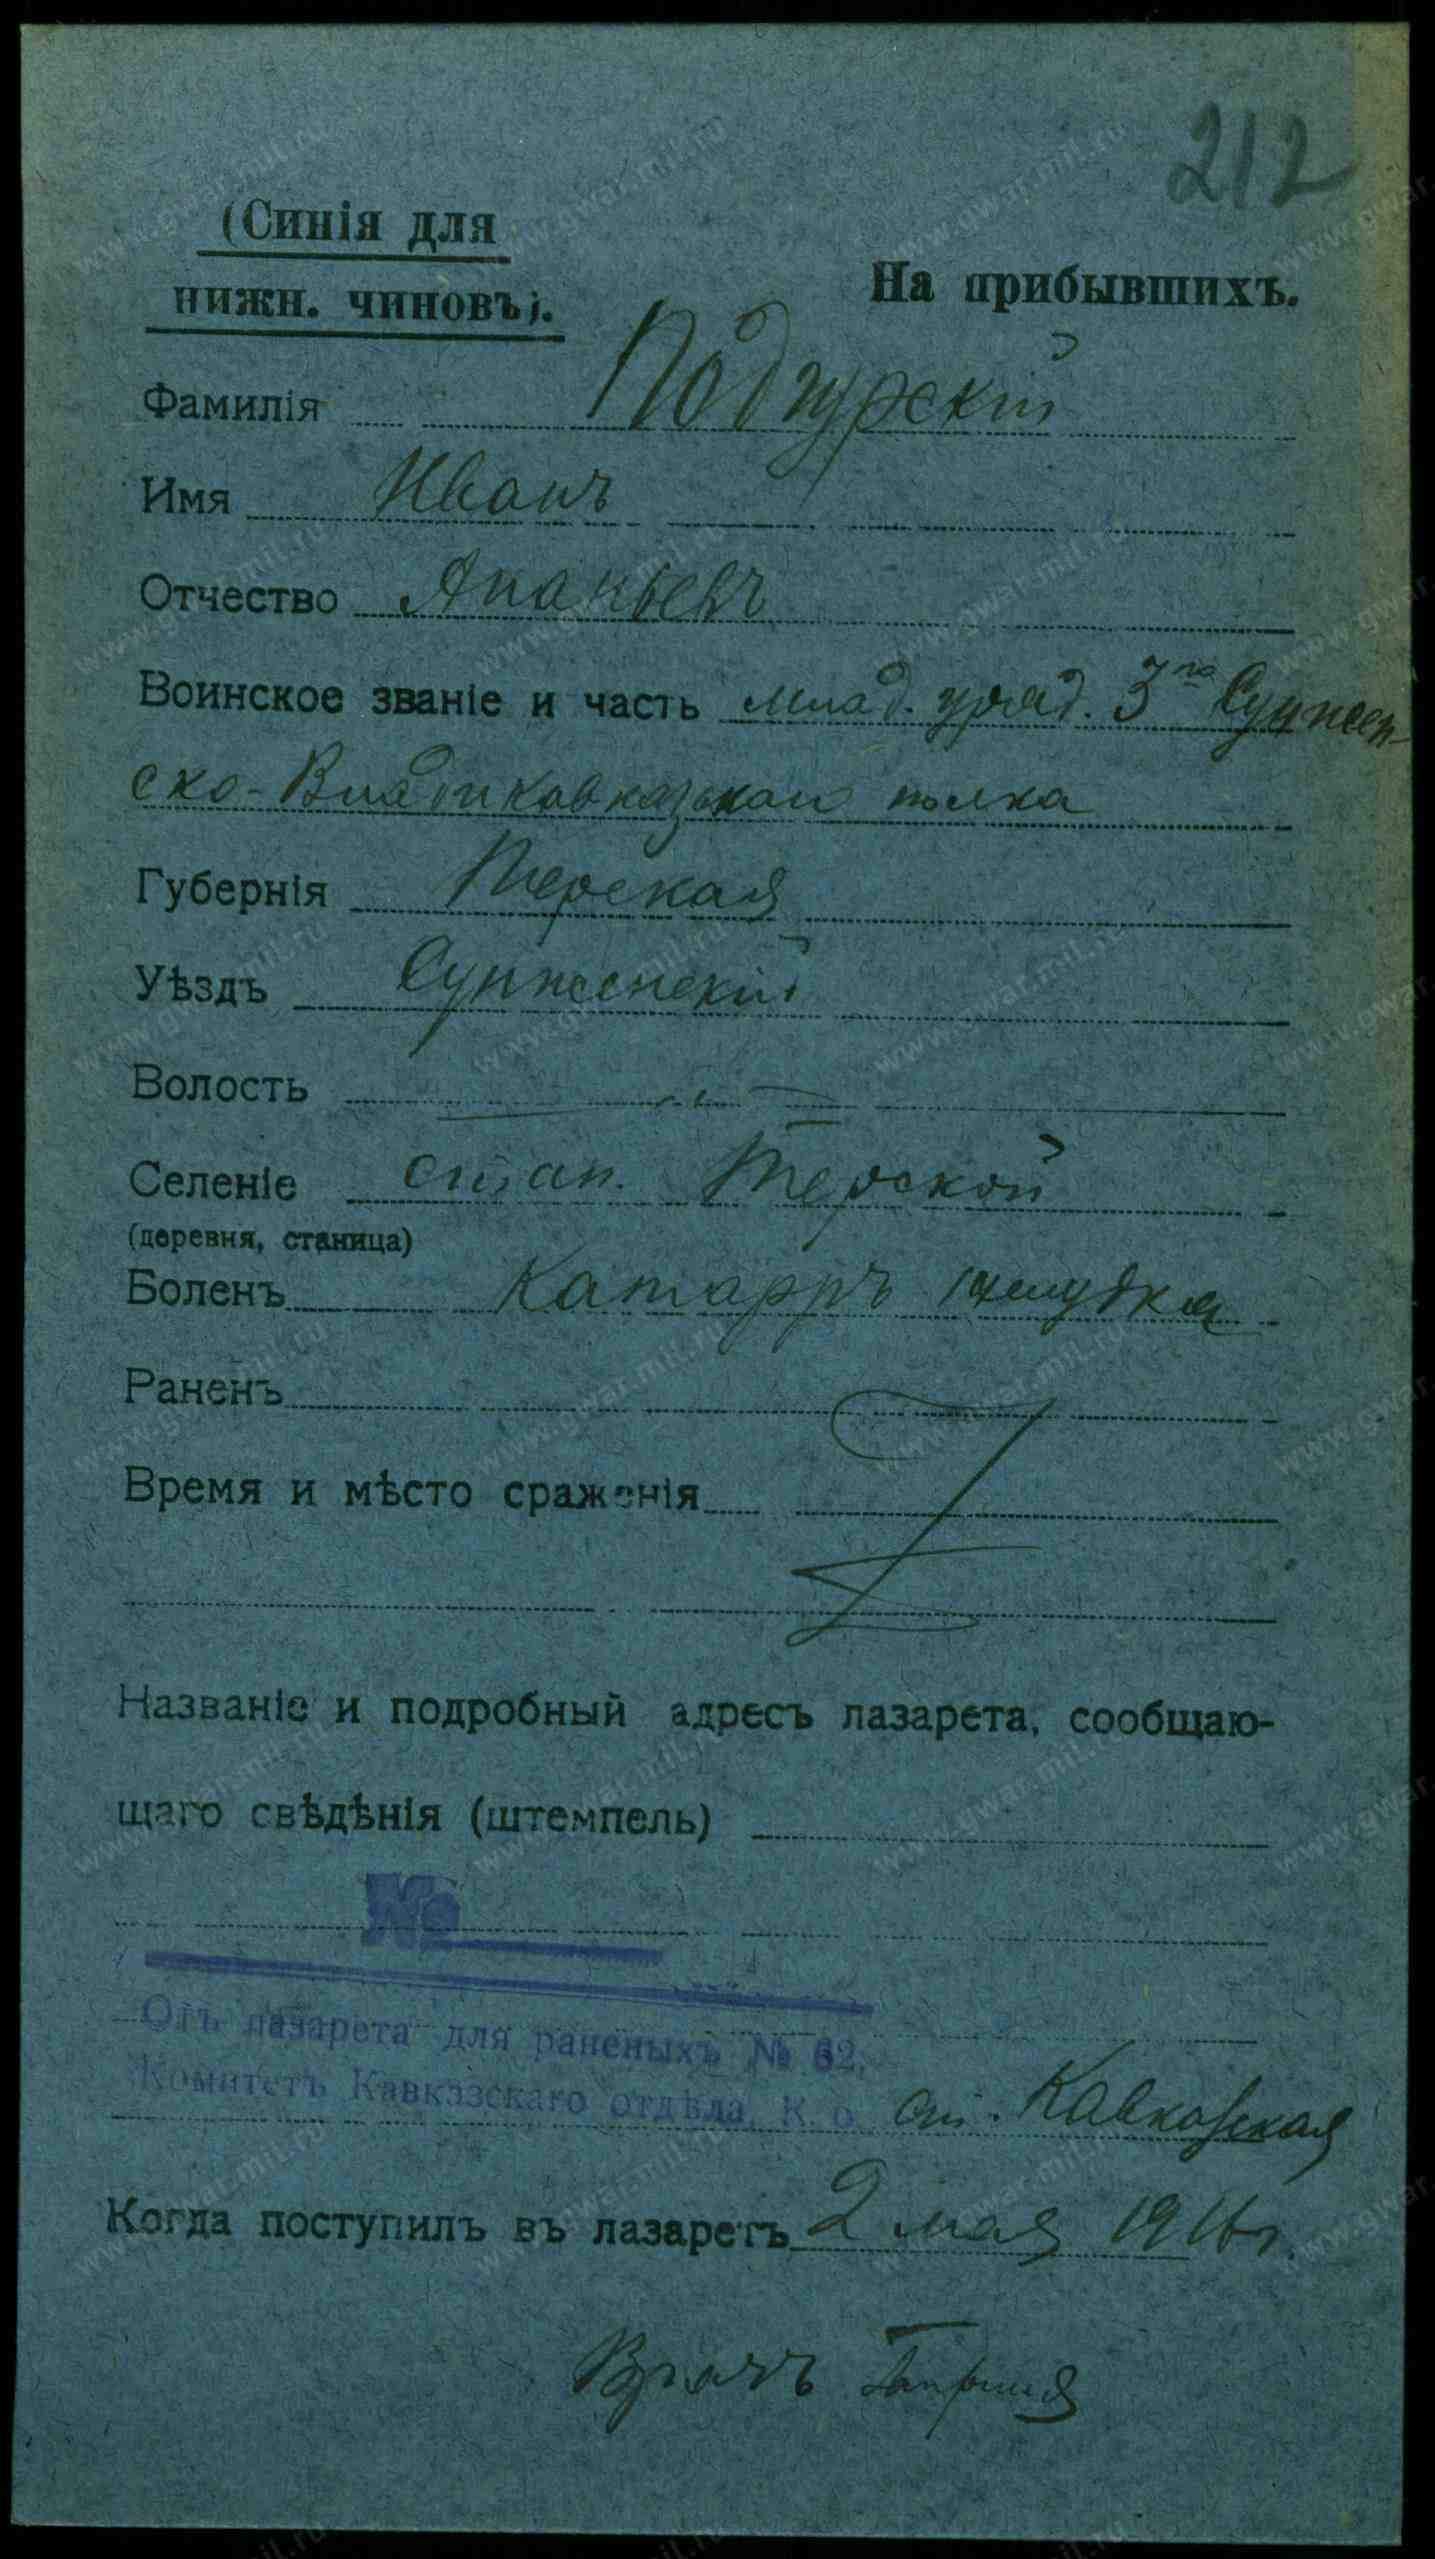 212
(Синія для
нижн. чиновъ).
На прибывшихъ.
Фамилія Подгурскій
Имя Иванъ
Отчество Ананьевъ
Воинское званіе и часть млад. уряд. 3го Сунжен-
ско-Владикавказскаго полка
Губернія Терская
Уѣздъ Сунженскій
Волость
Селеніе стан. Терской
(деревня, станица)
Боленъ Катарръ желудка
Раненъ
Время и мѣсто сраженія
Названіе и подробный адресъ лазарета, сообщаю-
щаго свѣдѣнія (штемпель)
№
Отъ лазарета для раненыхъ № 62,
Комитетъ Кавказскаго отдѣла, К. о. ст. Кавказская
Когда поступилъ въ лазаретъ 2 мая 1916 г.
Врачъ
www.gwar.mil.ru